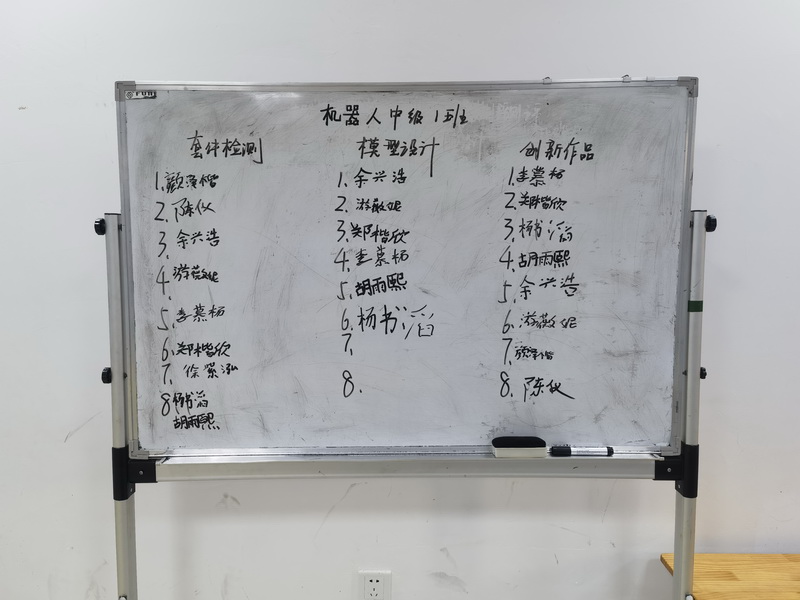 机器人中级1班
套件检测
1.顾溪楷
2.陈仪
3.余兴浩
4.游薇妮
5.李慕杨
6.郑楷欣
7.徐紧泓
8杨书滔
胡雨熙
模型设计
1.余兴浩
2.游薇妮
3.郑楷欣
4.李慕杨
5.胡雨熙
6.杨书滔
7.
8.
创新作品
1.李慕杨
2.郑楷欣
3.杨书滔
4.胡雨熙
5.余兴浩
6.游薇妮
7.
8.陈仪